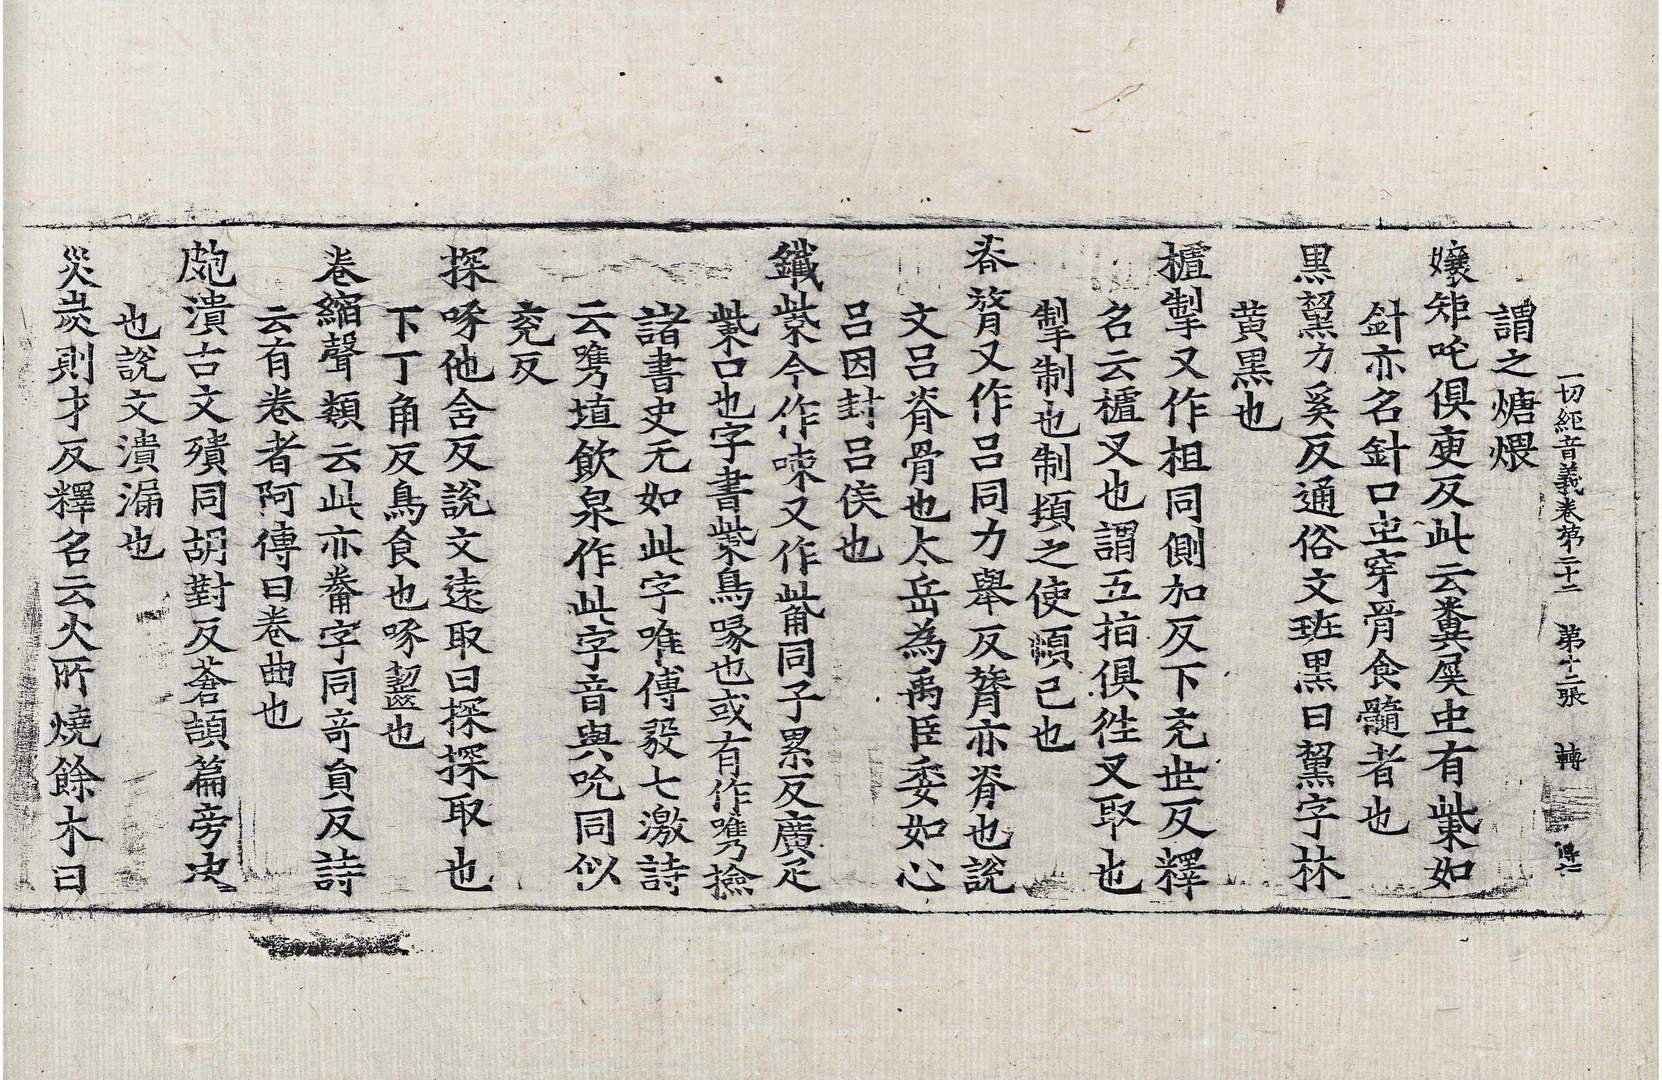 一切経音義卷第二十二 第十二張 轉
謂之煻煨
孃矩吒俱庾反此云糞屎虫有㭰如
針亦名針口虫穿骨食髓者也
黒黧力奚反通俗文班黒曰黧字林
黄黒也
樝掣又作柤同側加反下充世反釋
名云樝叉也謂五指俱徃叉取也
掣制也制頓之使順己也
脊膂又作吕同力舉反膂亦脊也說
文吕脊骨也太岳為禹臣委如心
吕因封吕侯也
鐵㭰今作𠲿又作觜同子累反廣疋
㭰口也字書㭰鳥喙也或有作嶲撿
諸書史无如此字唯傅毅七激詩
云嶲埴飲泉作此字音與吮同似
兖反
探啄他含反說文遠取曰探探取也
下丁角反鳥食也啄齧也
卷縮聲類云此亦觠字同竒負反詩
云有卷者阿傳曰卷曲也
皰潰古文殨同胡對反蒼頡篇旁决
也說文潰漏也
灾炭則才反釋名云火所燒餘木曰